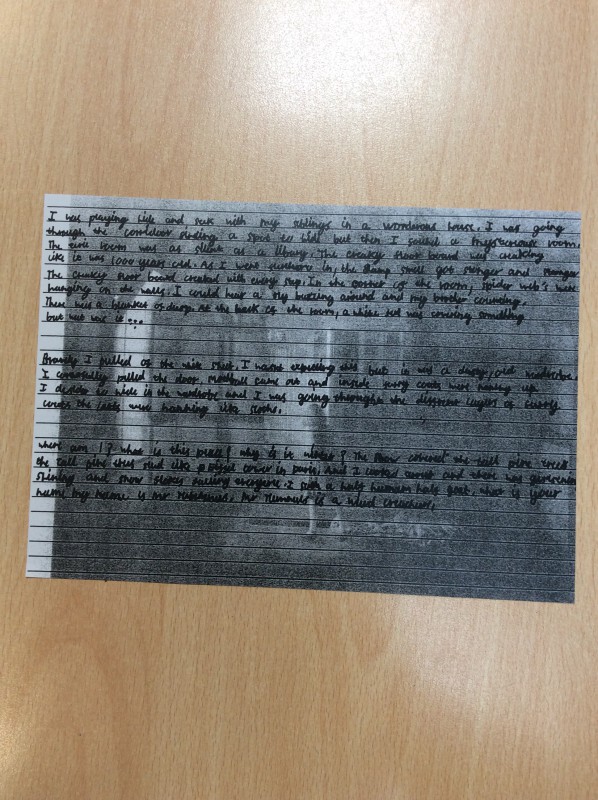 I was playing hide and seek with my siblings in a wonderous house. I was going
through the corridoor finding a spot to hide but then I sound a mysterious room.
The room was as silent as a libary. The creaky floor board was creaking
like it was 1,000 years old. As I went further in, the damp smell got stronger and stronger
The creaky floor board creaked with every step. In the corner of the room, spider web's were
hanging on the walls. I could hear a fly buzzing around and my brother counting.
There was a blanket of dusp. At the back of the room, a white was covering something
but wat was it ...
Bravely I pulled of the white sheet. I wasnt expecting this but it was a dusty, old
I carefully pulled the door. came out and inside furry coats were up.
I decided to hide in the wardrobe and I was going throught the different layers of furry
coats the coats were hanging like sloths.
where am I? what is this place? why is it winter? The snow covered the tall pine trees
the tall pine trees like in And I looked and there was
shining and snow falling everywere. I a half human half goat. what is your
name my name is Mr is a creacher.